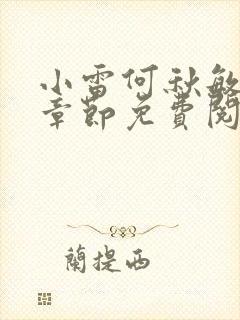 小雷何秋敏
章節免費閱
蘭提西